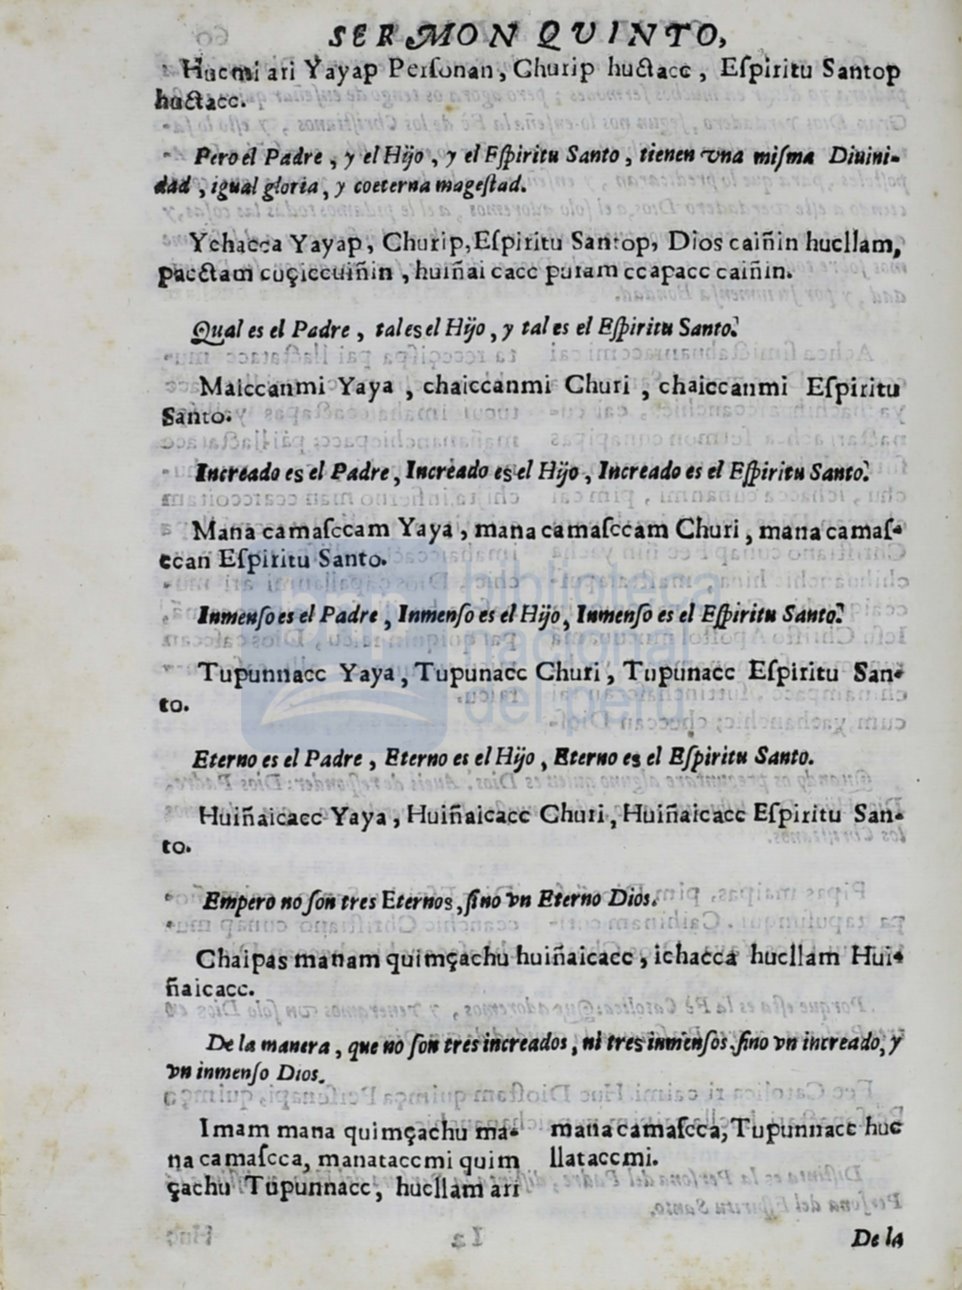 SERMON QUINTO,
Hucmi ari Yayap Perſonan, Churip huctacc, Eſpiritu Santop
huctacc.
Pero el Padre, y el Hijo, y el Eſpiritu Santo, tienen vna miſma Diuini-
dad, igual gloria, y coeterna mageſtad.
Ychacca Yayap, Churip, Eſpiritu Santop, Dios caiñin hucllam,
pacctam cuçiccuiñin, huiñai cacc puram ccapacc caiñin.
Qual es el Padre, tal es el Hijo, y tal es el Eſpiritu Santo.
Maiccanmi Yaya, chaiccanmi Churi, chaiccanmi Eſpiritu
Santo.
Increado es el Padre, Increado es el Hijo, Increado es el Eſpiritu Santo.
Mana camaſccam Yaya, mana camaſccam Churi, mana camaſ-
ccan Eſpiritu Santo.
Inmenſo es el Padre, Inmenſo es el Hijo, Inmenſo es el Eſpiritu Santo.
Tupunnacc Yaya, Tupunacc Churi, Tupunacc Eſpiritu San-
to.
Eterno es el Padre, Eterno es el Hijo, Eterno es el Eſpiritu Santo.
Huiñaicacc Yaya, Huiñaicacc Churi, Huiñaicacc Eſpiritu San-
to.
Empero no ſon tres Eternos, ſino vn Eterno Dios.
Chaipas manam quimçachu huiñaicacc, ichacca hucllam Hui-
ñaicacc.
De la manera, que no ſon tres increados, ni tres inmenſos, ſino vn increado, y
vn inmenſo Dios.
Imam mana quimçachu ma-
na camaſcca, manataccmi quim
çachu Tupunnacc, hucllam ari
mana camaſcca, Tupunnacc huc
llataccmi.
De la
biblioteca
nacional
del perú